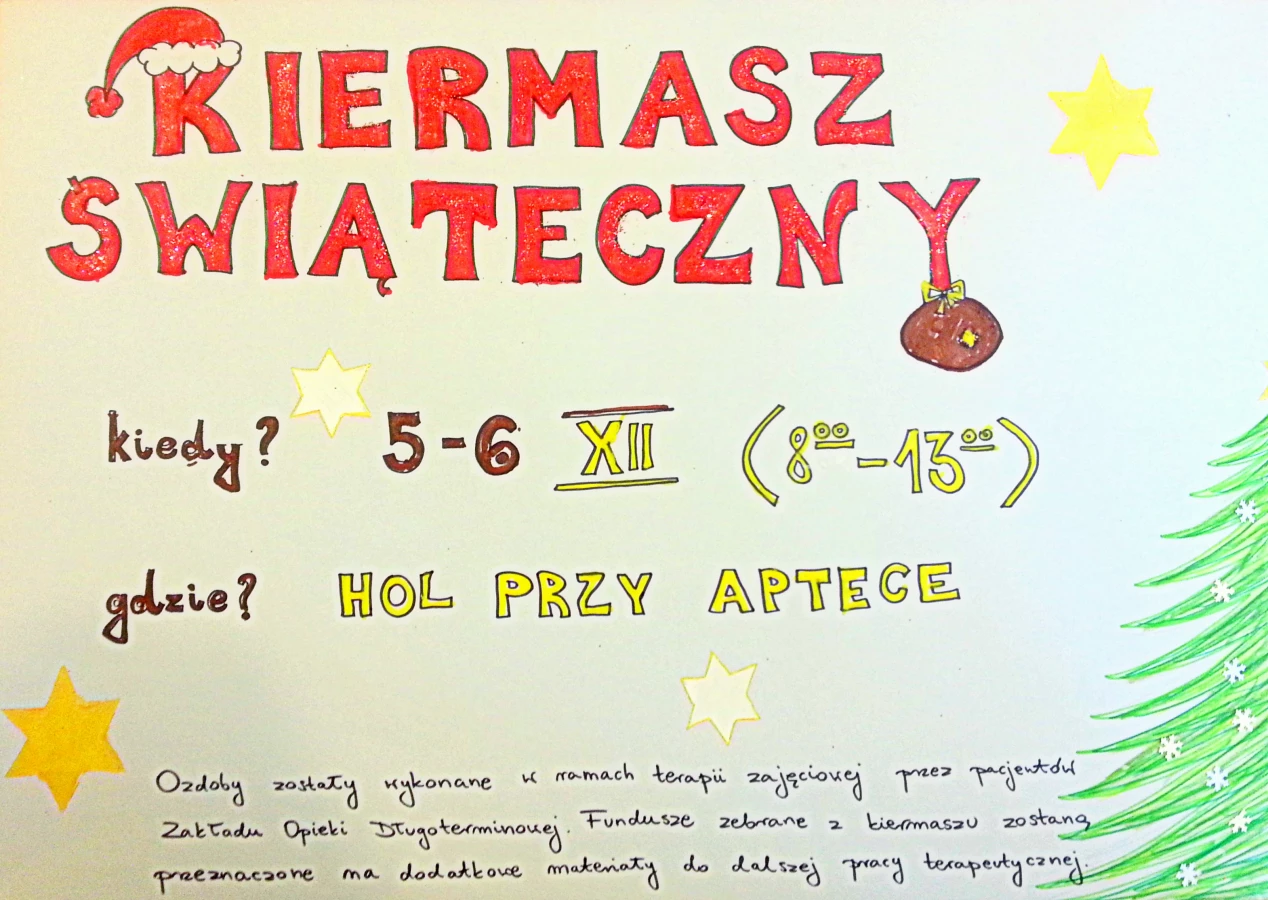 KIERMASZ
ŚWIĄTECZNY
kiedy? 5-6 XII (8⁰⁰-13⁰⁰)
gdzie? HOL PRZY APTECE
Ozdoby zostały wykonane w ramach terapii zajęciowej przez pacjentów
Zakładu Opieki Długoterminowej. Fundusze zebrane z kiermaszu zostaną
przeznaczone na dodatkowe materiały do dalszej pracy terapeutycznej.